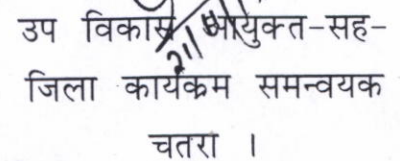 उप विकास आयुक्त-सह-
जिला कार्यक्रम समन्वयक
चतरा ।